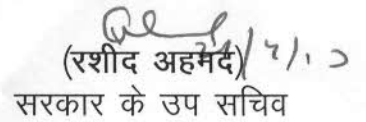 (रशीद अहमद)
सरकार के उप सचिव